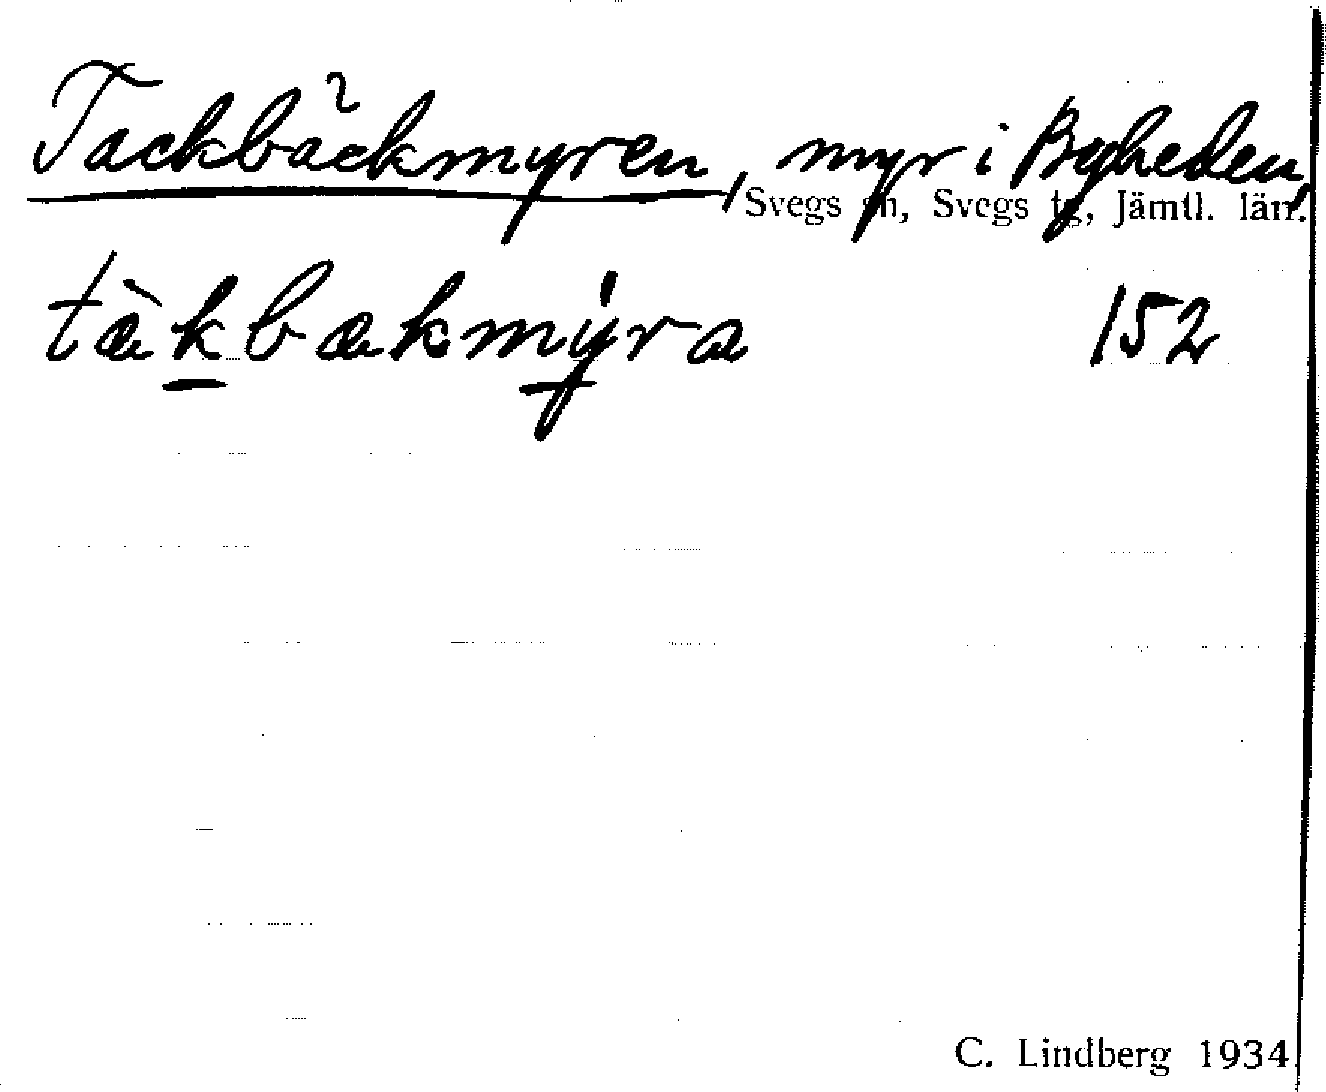 Tackbäckmyren, myr i Byheden,
Svegs sn, Svegs tg, Jämtl. län.
tæ̀kbækmýra 152
C. Lindberg 1934.